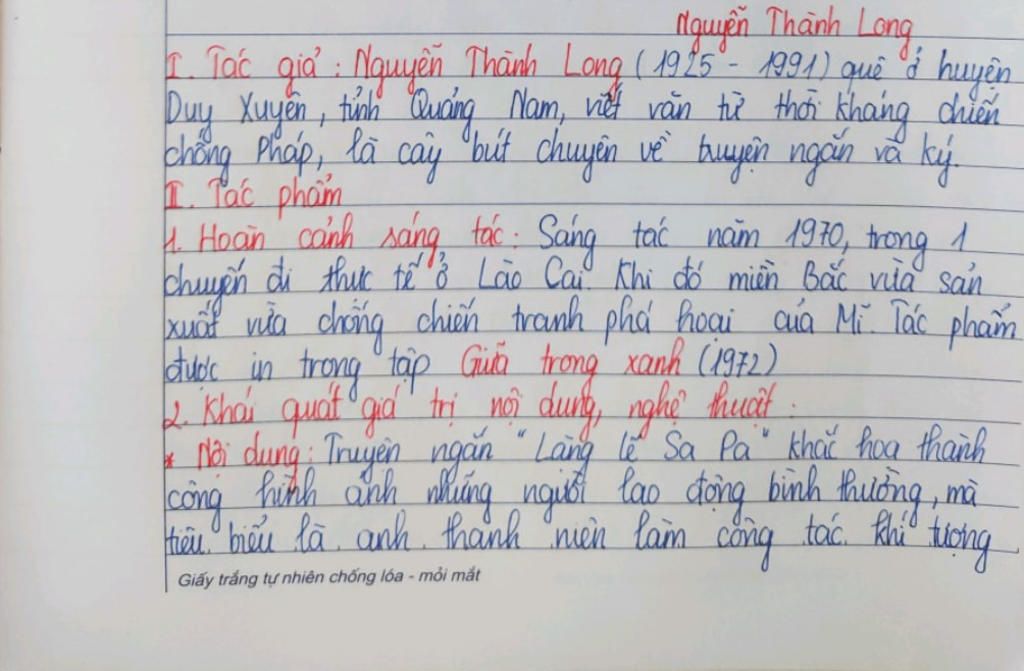 Nguyễn Thành Long
I. Tác giả : Nguyễn Thành Long (1925 - 1991) quê ở huyện
Duy Xuyên, tỉnh Quảng Nam, viết văn từ thời kháng chiến
chống Pháp, là cây bút chuyên về truyện ngắn và ký.
II. Tác phẩm
1. Hoàn cảnh sáng tác : Sáng tác năm 1970, trong 1
chuyến đi thực tế ở Lào Cai. Khi đó miền Bắc vừa sản
xuất vừa chống chiến tranh phá hoại của Mĩ. Tác phẩm
được in trong tập Giữa trong xanh (1972)
2. Khái quát giá trị nội dung, nghệ thuật :
* Nội dung : Truyện ngắn "Lặng lẽ Sa Pa" khắc họa thành
công hình ảnh những người lao động bình thường, mà
tiêu biểu là anh thanh niên làm công tác khí tượng
Giấy trắng tự nhiên chống lóa - mỏi mắt